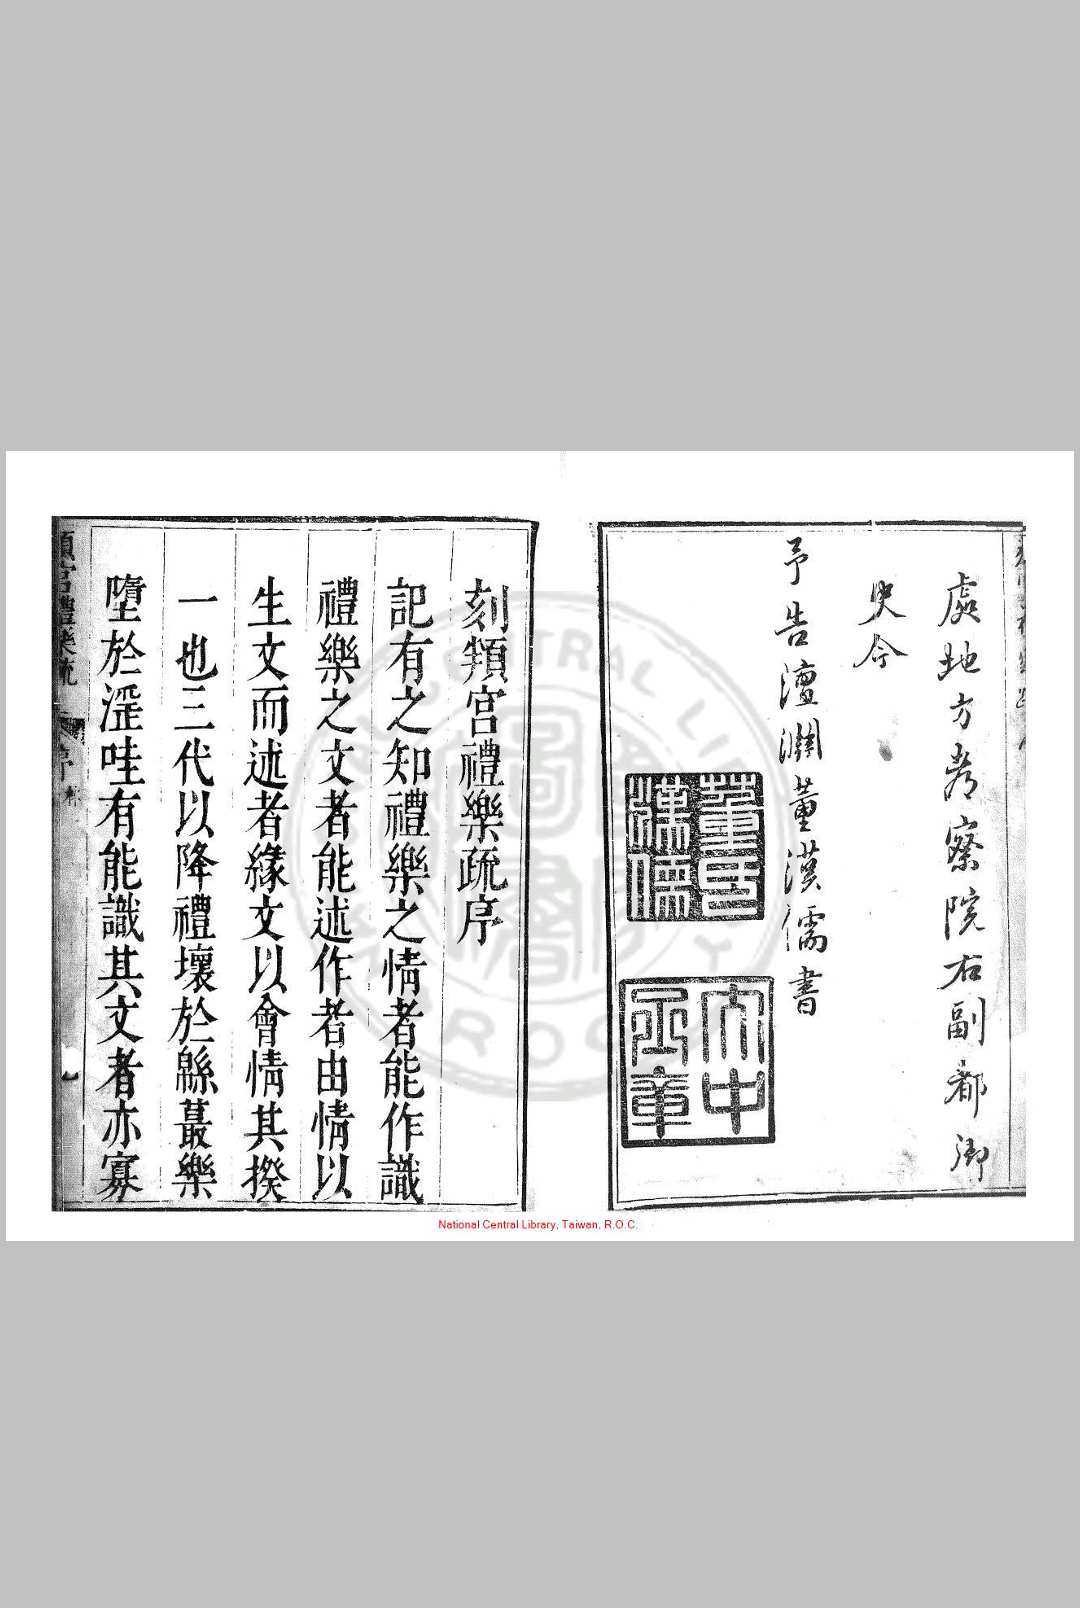 處地方考察院右副都御
史今
予告澶淵董漢儒書
董漢儒印
大中丞章
刻頖宮禮樂疏序
記有之知禮樂之情者能作識
禮樂之文者能述作者由情以
生文而述者緣文以會情其揆
一也三代以降禮壞於緜蕞樂
墮於淫哇有能識其文者亦寡
頖宮禮樂疏
CENTRAL LIBRARY
R.O.C.
National Central Library, Taiwan, R.O.C.